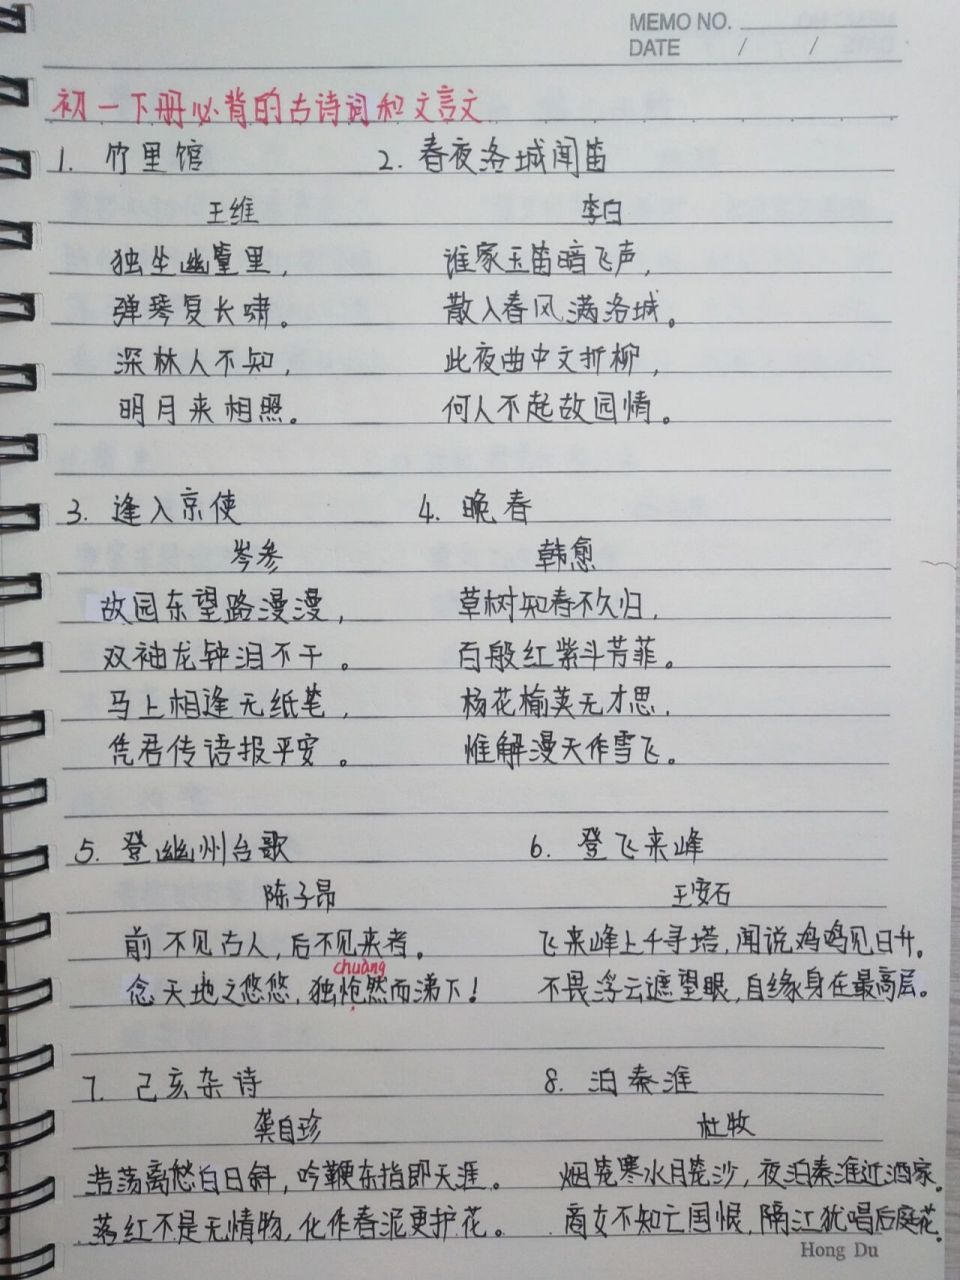 MEMO NO.
DATE / /
初一下册必背的古诗词和文言文
1. 竹里馆
王维
独坐幽篁里，
弹琴复长啸。
深林人不知，
明月来相照。
2. 春夜洛城闻笛
李白
谁家玉笛暗飞声，
散入春风满洛城。
此夜曲中文折柳，
何人不起故园情。
3. 逢入京使
岑参
故园东望路漫漫，
双袖龙钟泪不干。
马上相逢无纸笔，
凭君传语报平安。
4. 晚春
韩愈
草树知春不久归，
百般红紫斗芳菲。
杨花榆荚无才思，
惟解漫天作雪飞。
5. 登幽州台歌
陈子昂
前不见古人，后不见来者。
chuàng
念天地之悠悠，独怆然而涕下！
6. 登飞来峰
王安石
飞来峰上千寻塔，闻说鸡鸣见日升。
不畏浮云遮望眼，自缘身在最高层。
7. 己亥杂诗
龚自珍
浩荡离愁白日斜，吟鞭东指即天涯。
落红不是无情物，化作春泥更护花。
8. 泊秦淮
杜牧
烟笼寒水月笼沙，夜泊秦淮近酒家。
商女不知亡国恨，隔江犹唱后庭花。
Hong Du